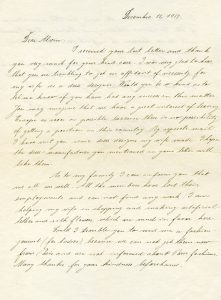 December 12, 1938.
Dear Alvin:
I received your last letter and thank
you very much for your kind care. I was very glad to hear
that you are willing to get an affidavit of necessity for
my wife as a designer. Would you be so kind as to
let me know if you have had any success in this matter.
You may imagine that we have a great interest of leaving
Europe as soon as possible because there is no possibility
of getting a position in this country. By separate mail
I have sent you some designs my wife made. I hope
the manufacturers you mentioned in your letter will
like them.
As to my family I can inform you that
we all are well. All the members have lost their
employments and can not find any work. I am
helping my wife in shopping and making artificial
leather and silk flowers which are much in favor here.
Could I trouble you to send me a fashion
journal (for ladies) because we can not get them now
from and are not informed about fashion.
Many thanks for your kindness beforehand.